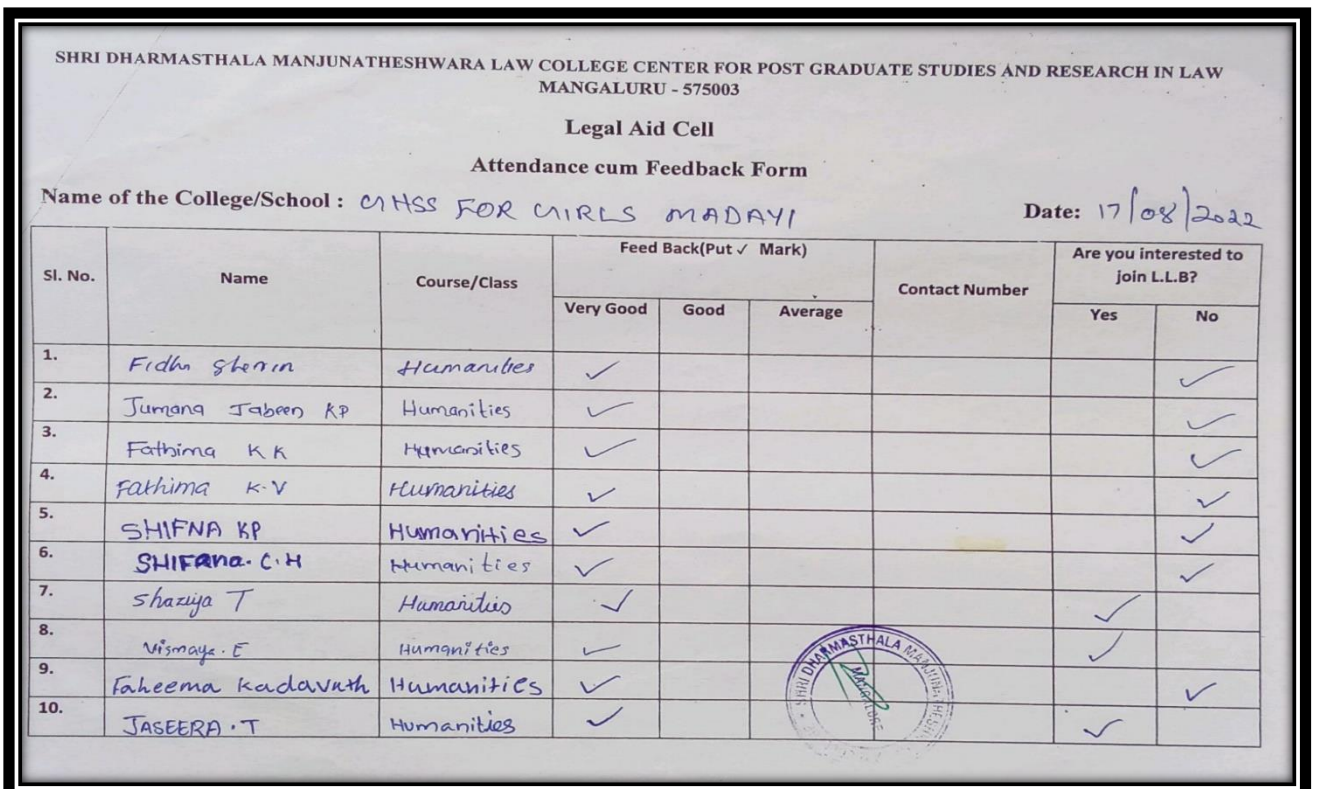 SHRI DHARMASTHALA MANJUNATHESHWARA LAW COLLEGE CENTER FOR POST GRADUATE STUDIES AND RESEARCH IN LAW
MANGALURU - 575003
Legal Aid Cell
Attendance cum Feedback Form
Name of the College/School : GHSS FOR GIRLS MADAYI Date: 17/08/2022
Sl. No. Name Course/Class Feed Back(Put ✓ Mark) Contact Number Are you interested to
join L.L.B?
Very Good Good Average Yes No
1. Fidha Sherin Humanities ✓ ✓
2. Jumana Jabeen KP Humanities ✓ ✓
3. Fathima K K Humanities ✓ ✓
4. Fathima K.V Humanities ✓ ✓
5. SHIFNA KP Humanities ✓ ✓
6. SHIFana. C.H Humanities ✓ ✓
7. Shaziya T Humanities ✓ ✓
8. Vismaya. E Humanities ✓ ✓
9. Faheema Kadavath Humanities ✓ ✓
10. JASEERA.T Humanities ✓ ✓
SHRI DHARMASTHALA MANJUNATHESH
MANGALORE